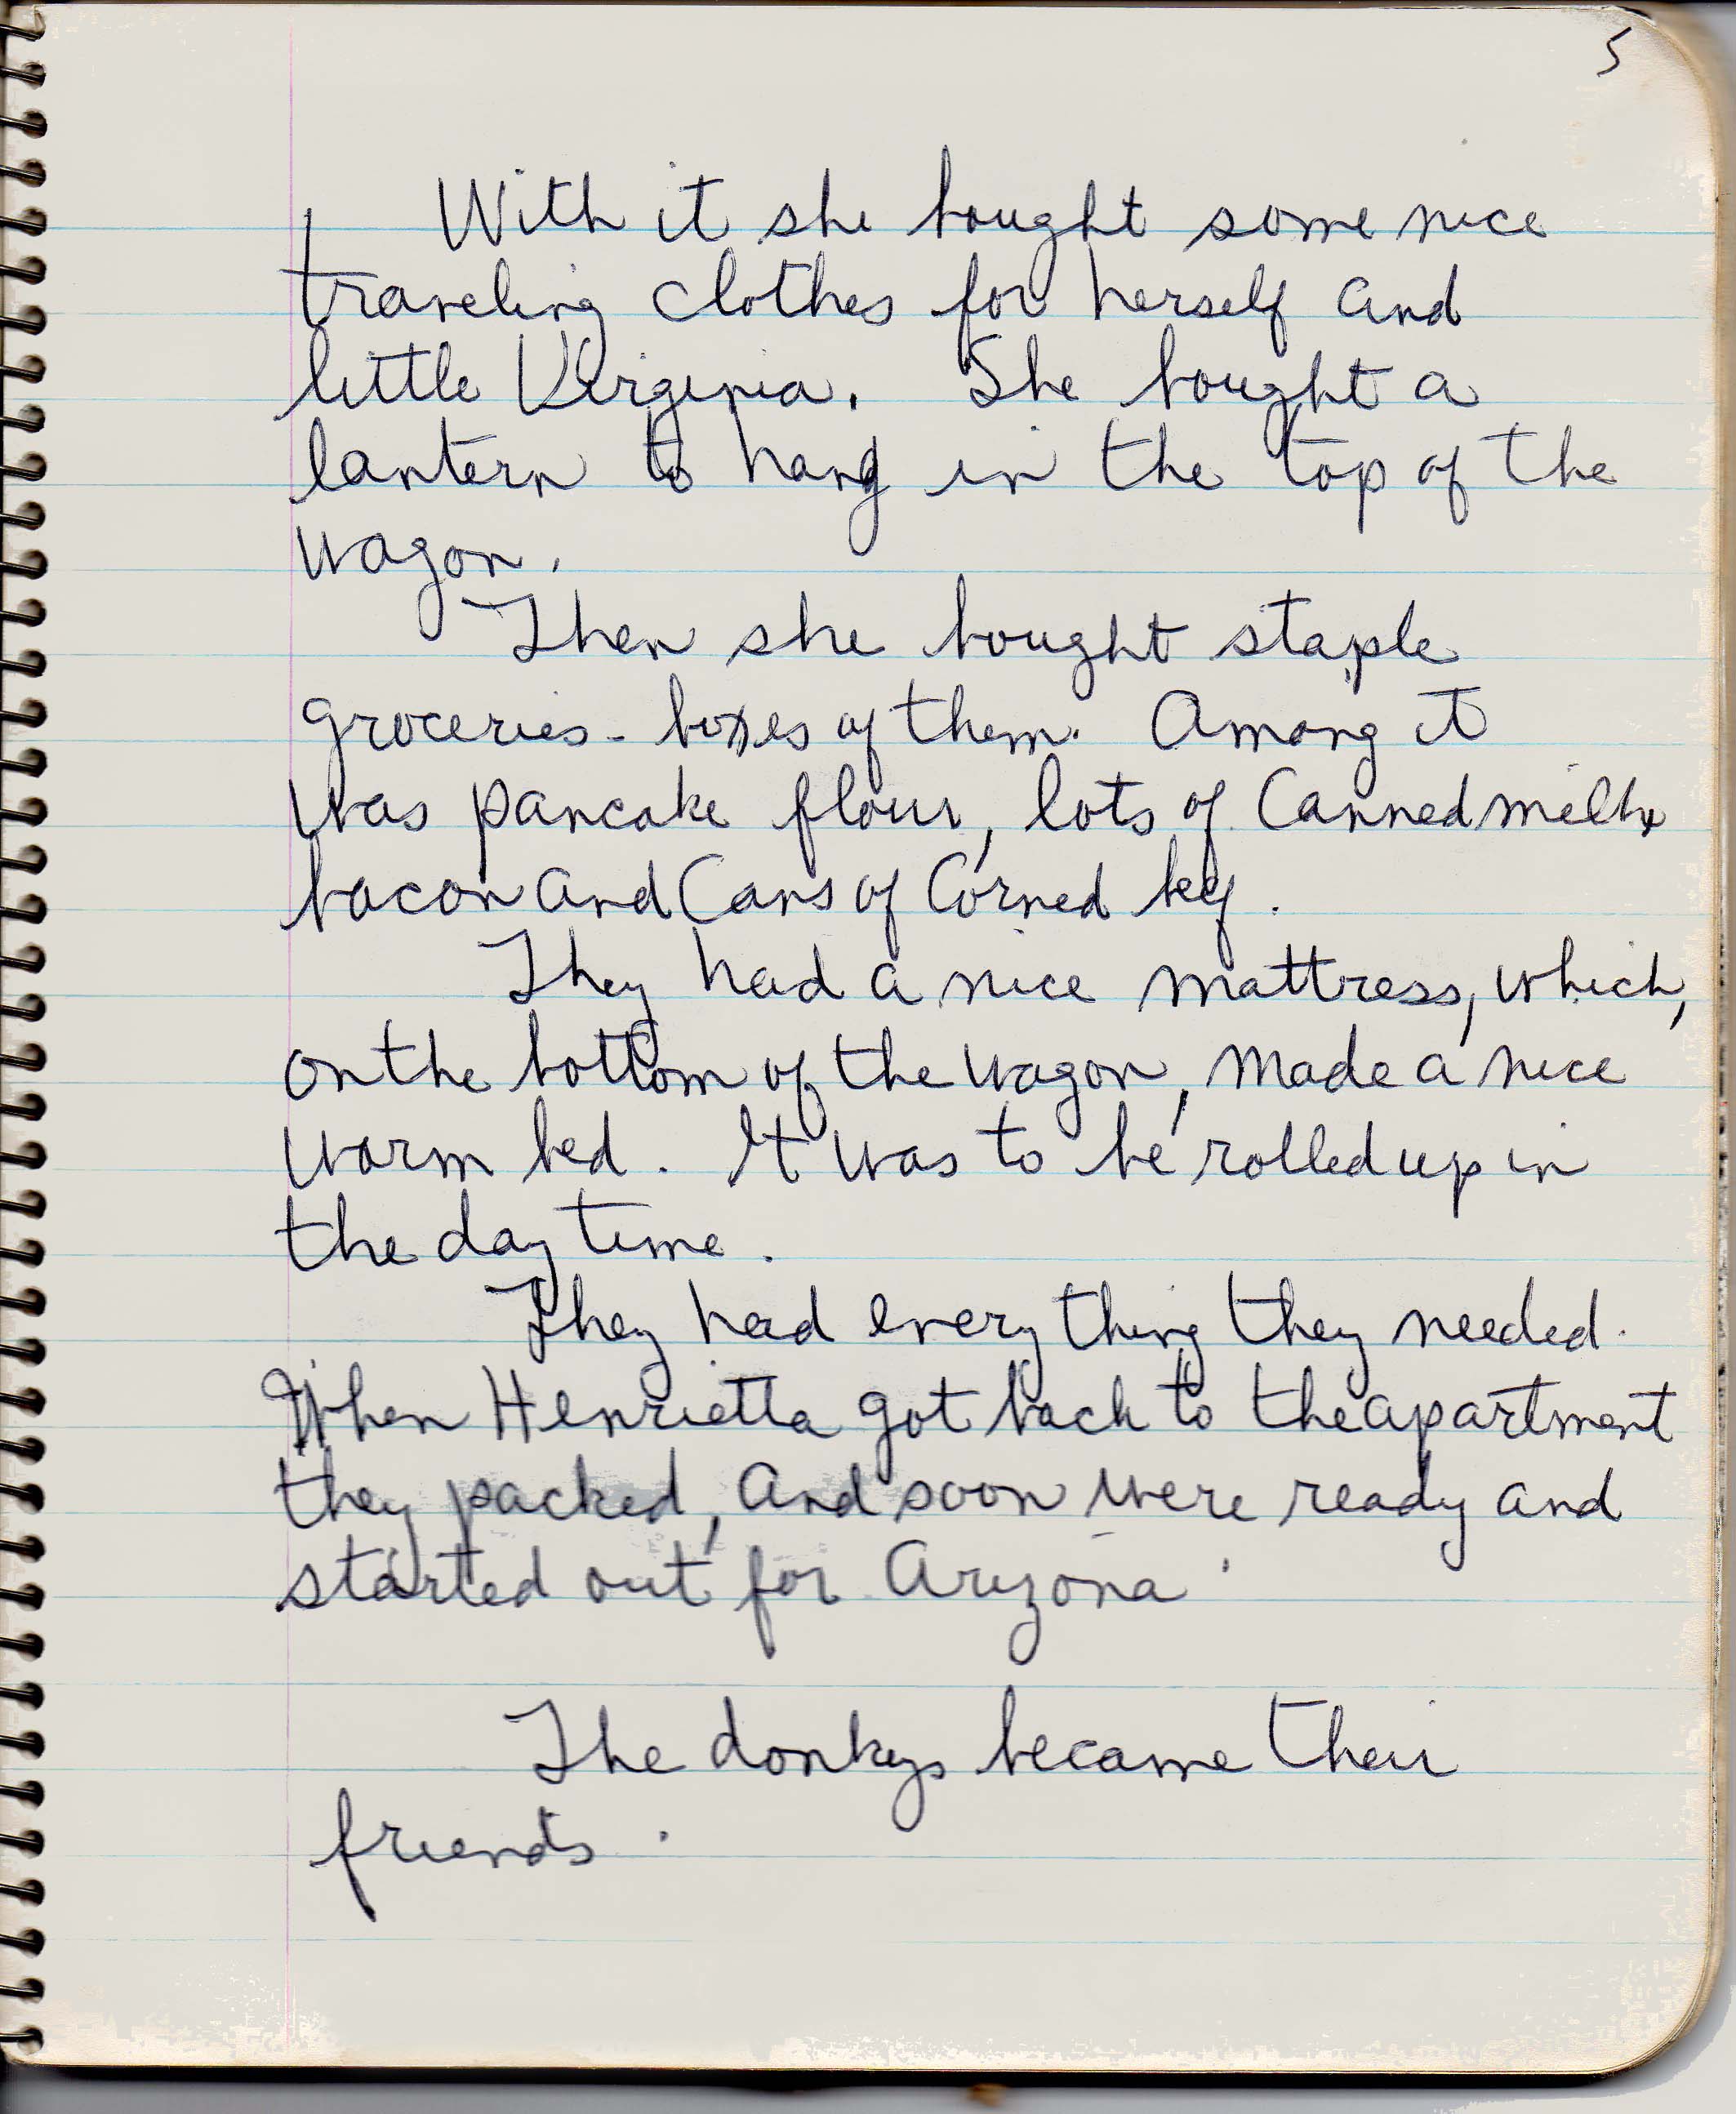 5
With it she bought some nice
traveling clothes for herself and
little Virginia. She bought a
lantern to hang in the top of the
wagon.
Then she bought staple
groceries - boxes of them. Among it
was pancake flour, lots of canned milk
bacon and cans of corned beef.
They had a nice mattress, which,
on the bottom of the wagon, made a nice
warm bed. It was to be rolled up in
the day time.
They had every thing they needed.
When Henrietta got back to the apartment
they packed, and soon were ready and
started out for Arizona.
The donkeys became their
friends.